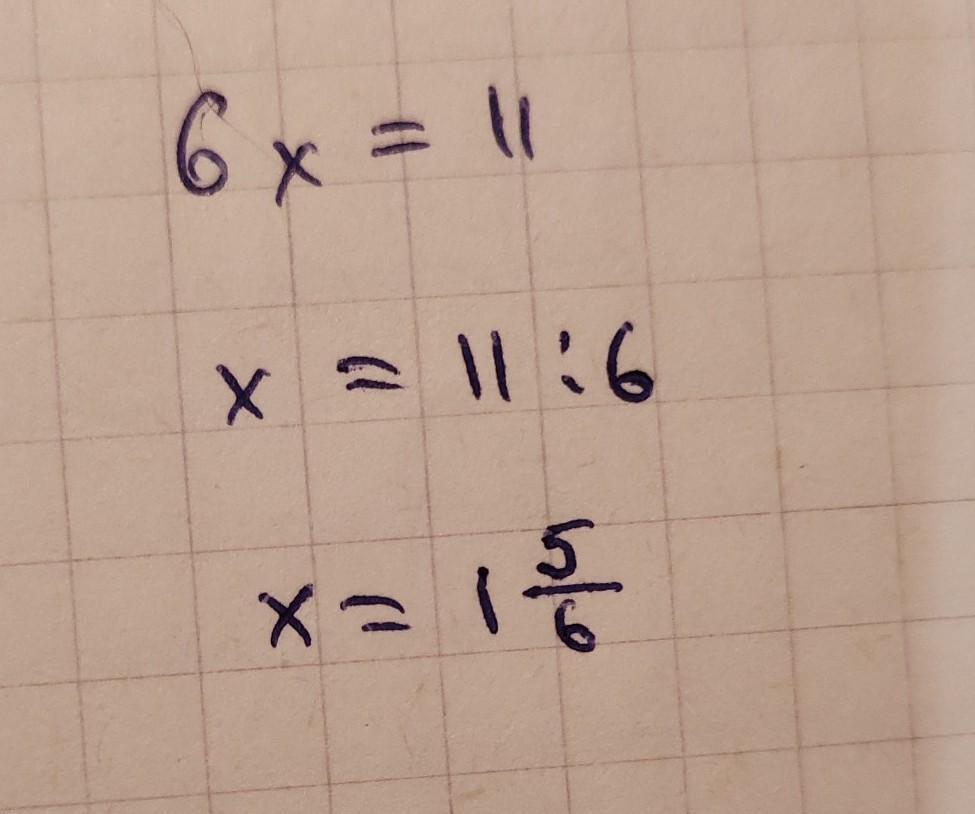 6x = 11
x = 11 : 6
x = 1 5/6